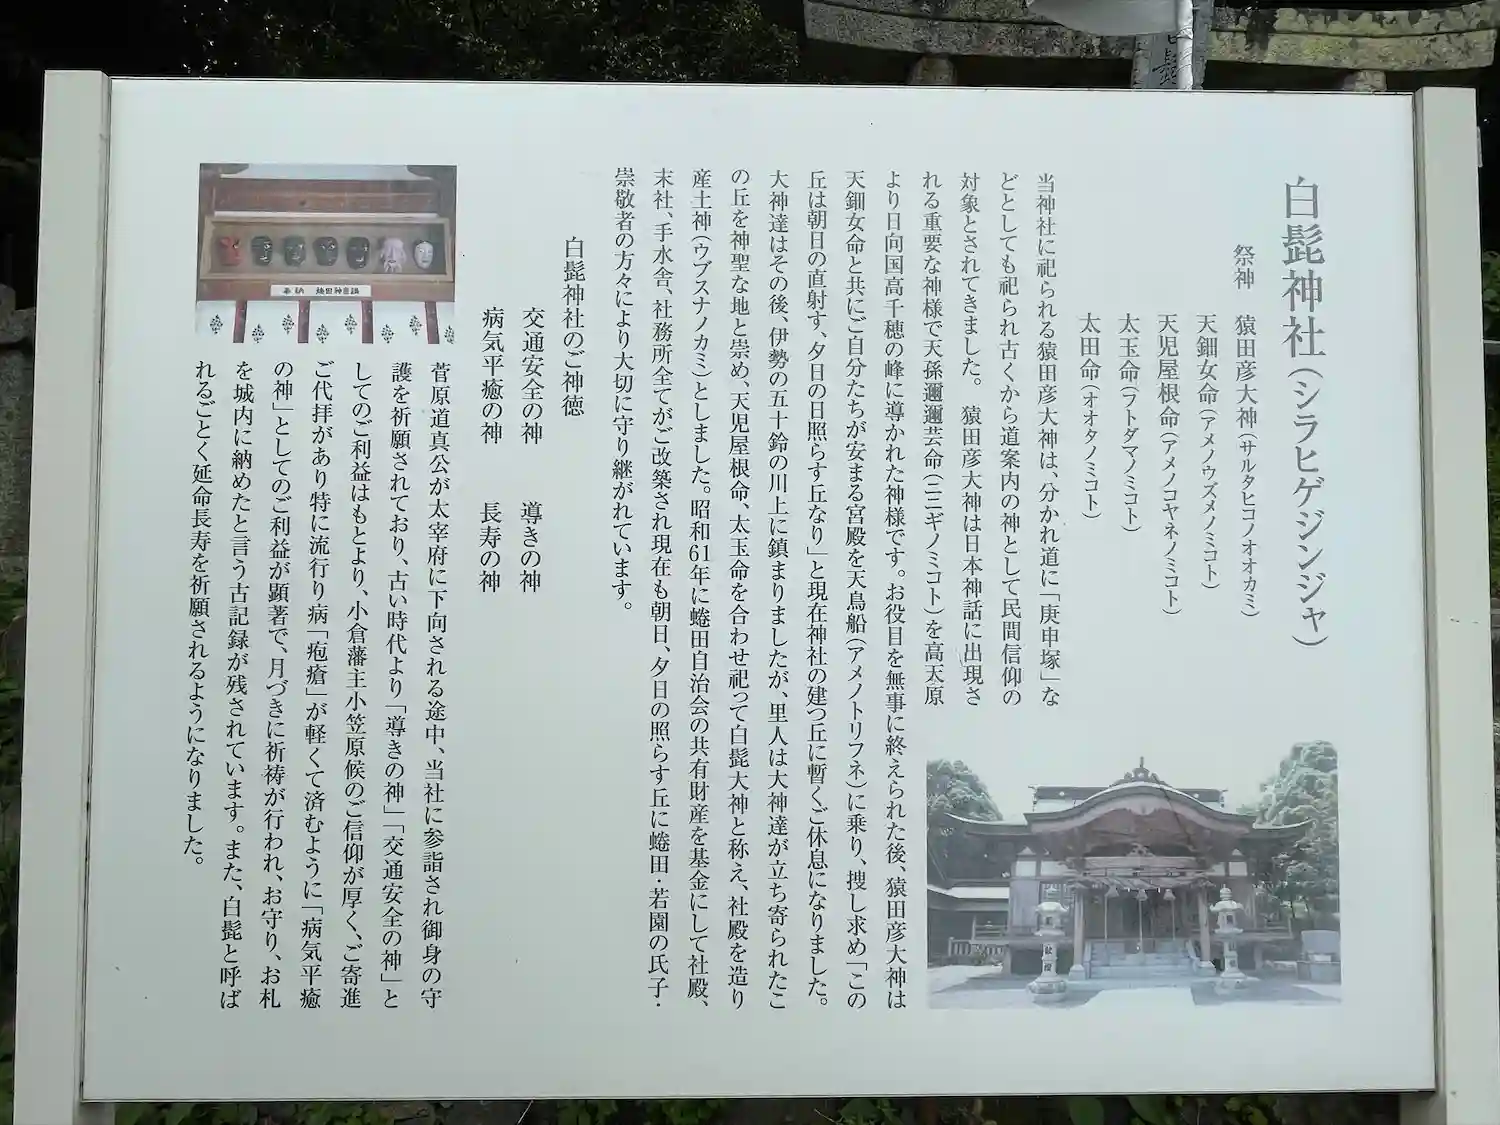 白髭神社（シラヒゲジンジャ）
祭神　猿田彦大神（サルタヒコノオオカミ）
天鈿女命（アメノウズメノミコト）
天児屋根命（アメノコヤネノミコト）
太玉命（フトダマノミコト）
太田命（オオタノミコト）
当神社に祀られる猿田彦大神は、分かれ道に「庚申塚」な
どとしても祀られ古くから道案内の神として民間信仰の
対象とされてきました。猿田彦大神は日本神話に出現さ
れる重要な神様で天孫邇邇芸命（ニニギノミコト）を高天原
より日向国高千穂の峰に導かれた神様です。お役目を無事に終えられた後、猿田彦大神は
天鈿女命と共にご自分たちが安まる宮殿を天鳥船（アメノトリフネ）に乗り、捜し求め「この
丘は朝日の直射す、夕日の日照らす丘なり」と現在神社の建つ丘に暫くご休息になりました。
大神達はその後、伊勢の五十鈴の川上に鎮まりましたが、里人は大神達が立ち寄られたこ
の丘を神聖な地と崇め、天児屋根命、太玉命を合わせ祀って白髭大神と称え、社殿を造り
産土神（ウブスナノカミ）としました。昭和61年に蜷田自治会の共有財産を基金にして社殿、
末社、手水舎、社務所全てがご改築され現在も朝日、夕日の照らす丘に蜷田・若園の氏子・
崇敬者の方々により大切に守り継がれています。
白髭神社のご神徳
交通安全の神　導きの神
病気平癒の神　長寿の神
菅原道真公が太宰府に下向される途中、当社に参詣され御身の守
護を祈願されており、古い時代より「導きの神」「交通安全の神」と
してのご利益はもとより、小倉藩主小笠原候のご信仰が厚く、ご寄進
ご代拝があり特に流行り病「疱瘡」が軽くて済むように「病気平癒
の神」としてのご利益が顕著で、月づきに祈祷が行われ、お守り、お札
を城内に納めたと言う古記録が残されています。また、白髭と呼ば
れるごとく延命長寿を祈願されるようになりました。
奉納